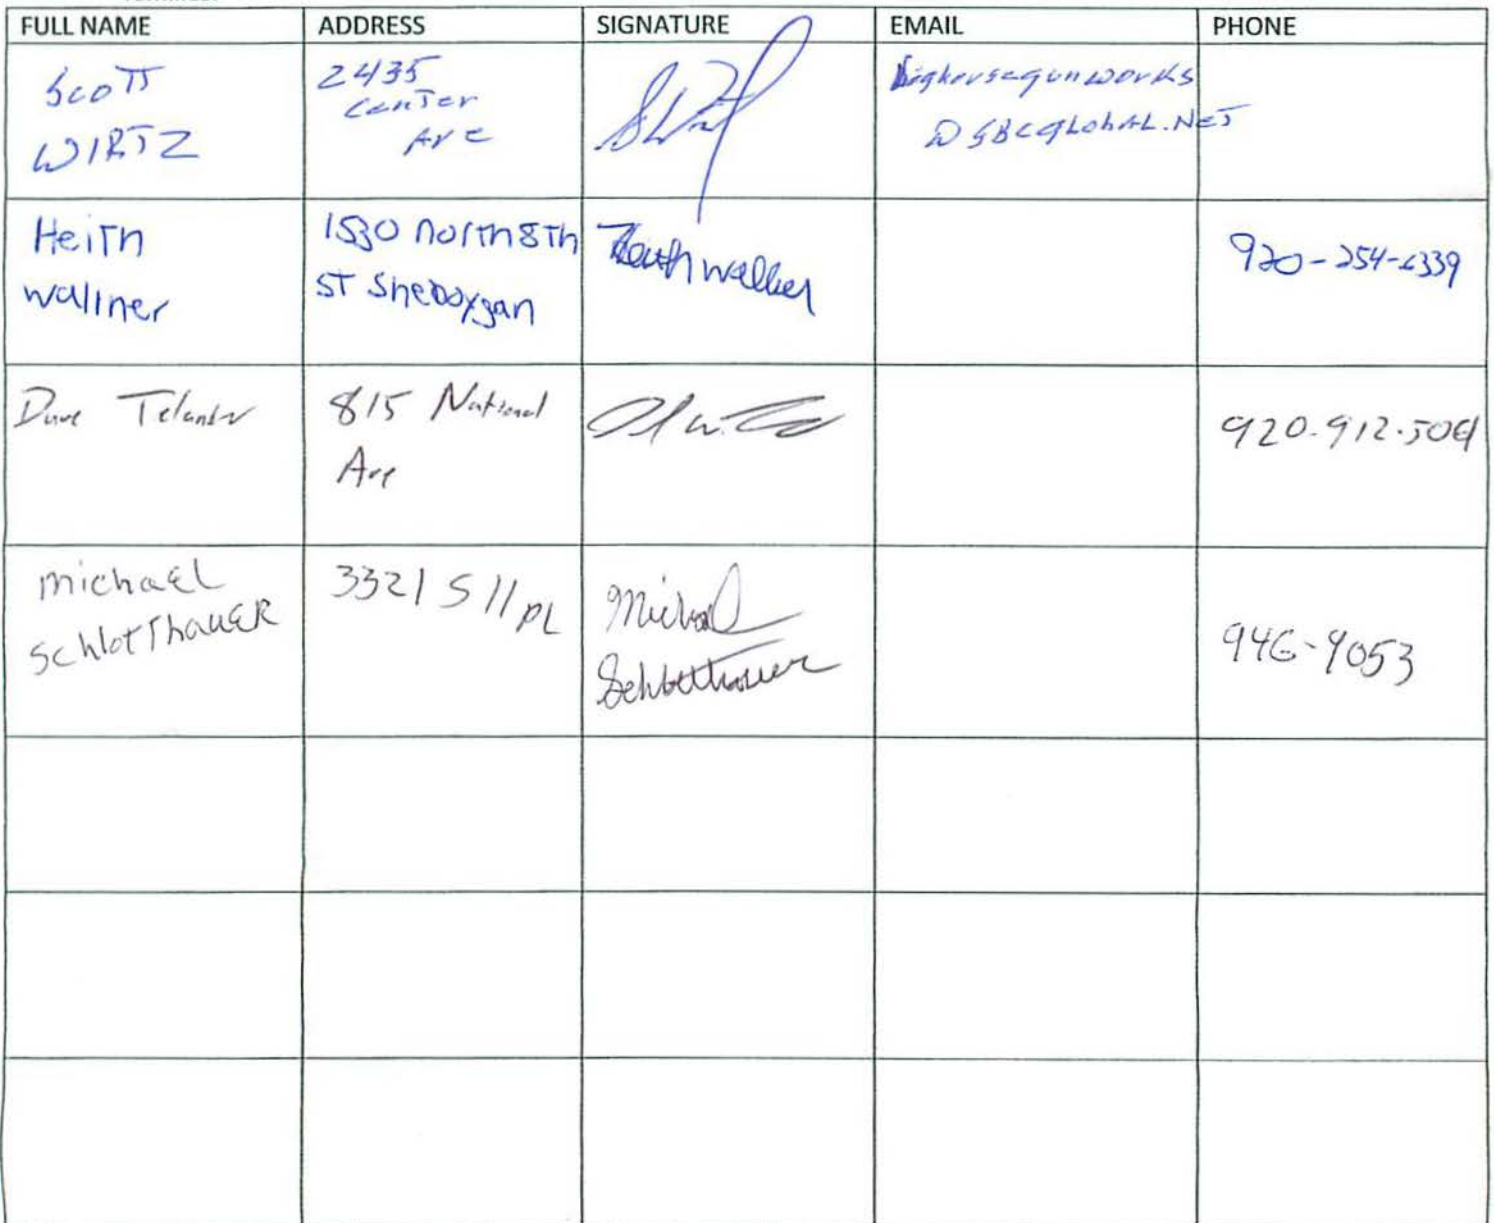 FULL NAME ADDRESS SIGNATURE EMAIL PHONE
Scott
WIRTZ
2435
Center
Ave
bighorsegunworks
@SBCgLobAL.NET
Heith
wallner
1530 north 8th
ST Sheboygan
920-254-6339
Dave Telander
815 National
Ave
920-912-
michaEL
SchlotThauER
3321 S 11 PL
Michael
Schlotthauer
946-9053